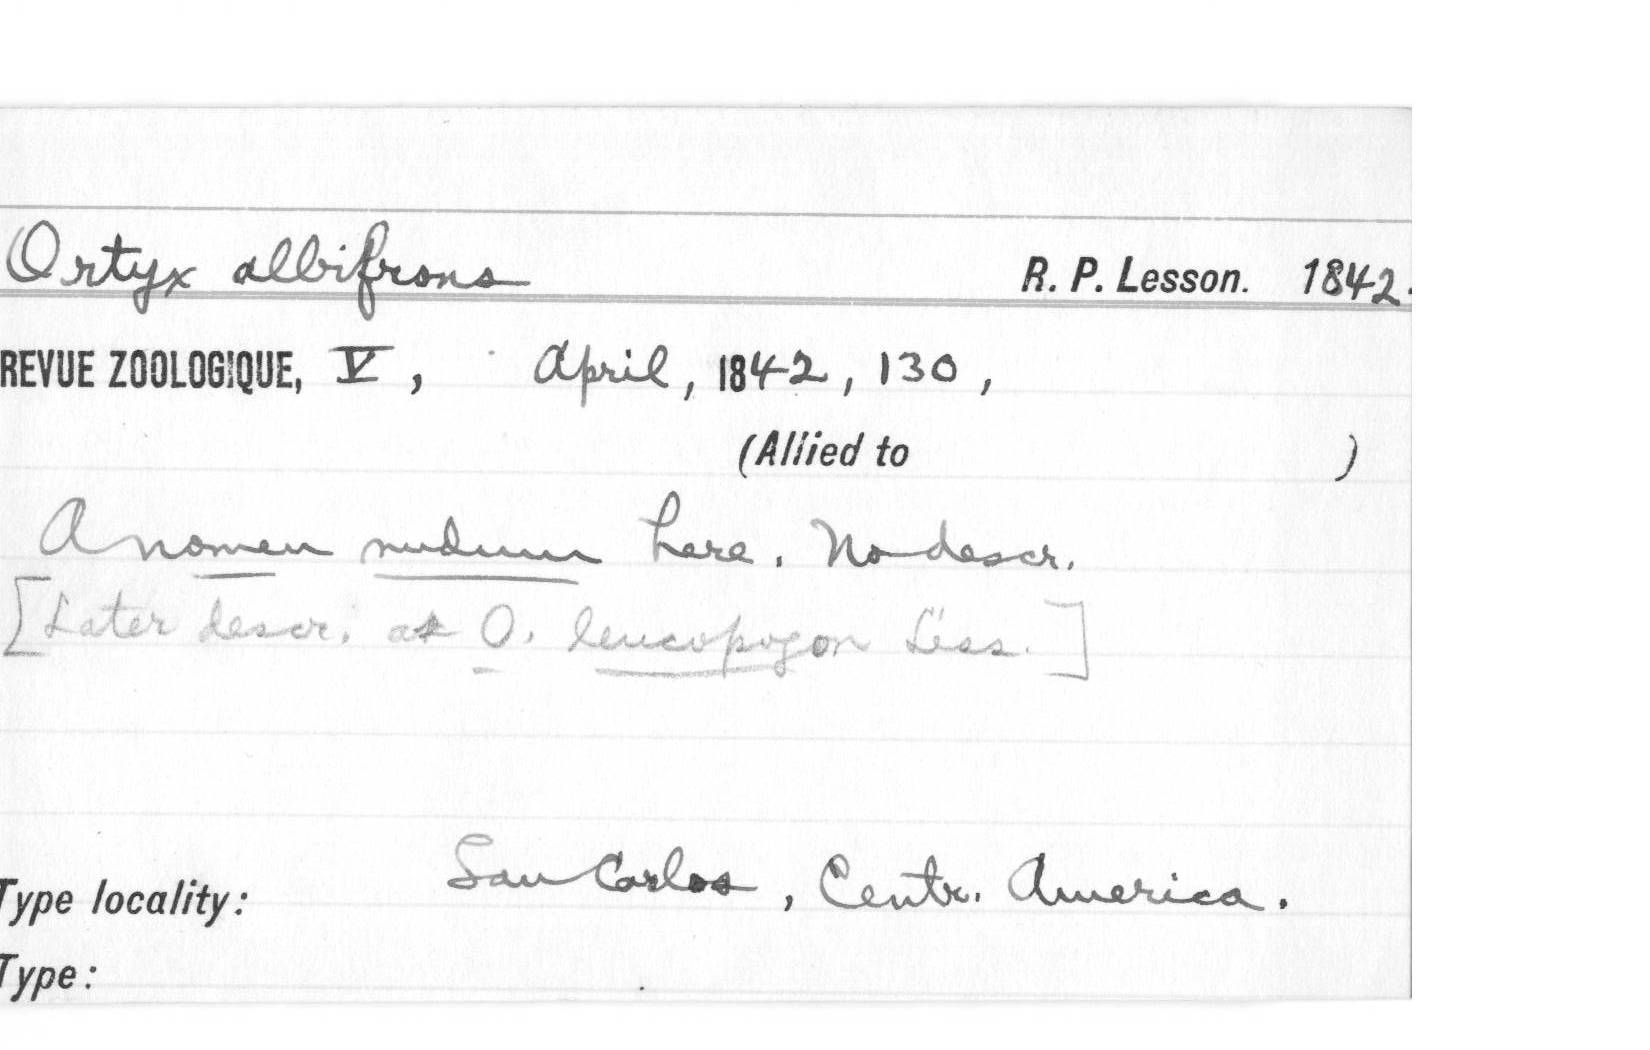 Ortyx albifrons R. P. Lesson. 1842.
REVUE ZOOLOGIQUE, V, April, 1842, 130,
(Allied to )
A nomen nudum here. No descr.
[Later descr. as O. leucopogon Less.]
Type locality: San Carlos, Centr. America.
Type: